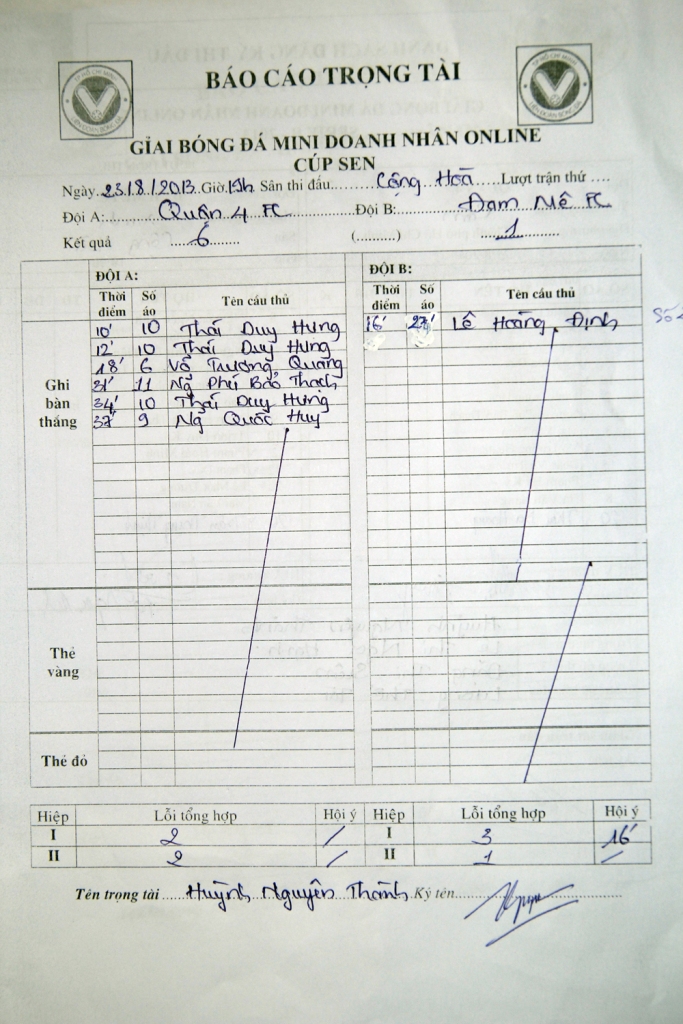 BÁO CÁO TRỌNG TÀI
GIẢI BÓNG ĐÁ MINI DOANH NHÂN ONLINE
CÚP SEN
Ngày 23/8/2013 Giờ Sân thi đấu Cộng Hoà Lượt trận thứ ....
Đội A: Quận 4 FC Đội B: Đam Mê FC
Kết quả 6 (..........) 1
ĐỘI A: ĐỘI B:
Thời điểm Số áo Tên cầu thủ Thời điểm Số áo Tên cầu thủ
Ghi bàn thắng
10' 10 Thái Duy Hưng 16' 27 Lê Hoàng Định
12' 10 Thái Duy Hưng
18' 6 Võ Trương Quang
31' 11 Ng Phú Bảo Thạch
34' 10 Thái Duy Hưng
37' 9 Ng Quốc Huy
Thẻ vàng
Thẻ đỏ
Hiệp Lỗi tổng hợp Hội ý Hiệp Lỗi tổng hợp Hội ý
I 2 / I 3 16'
II 2 / II 1 /
Tên trọng tài Huỳnh Nguyên Thành Ký tên